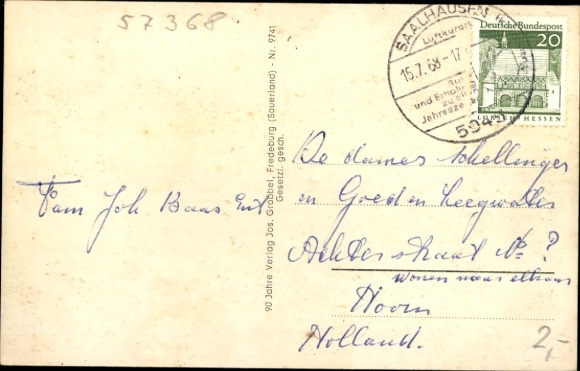 57368
SAALHAUSEN
Luftkurort
15.7.68-17
und Erholu
Jahresze
5949
Deutsche Bundespost
20
LORSCH/HESSEN
Fam Joh Baas
90 Jahre Verlag Jos. Grobbel, Fredeburg (Sauerland) Nr. 9741
Gesetzl. gesch.
De dames Schellinger
en Goed en Leegwater
Achterstraat No ?
wonen naast elkaar
Hoorn
Holland.
2,-